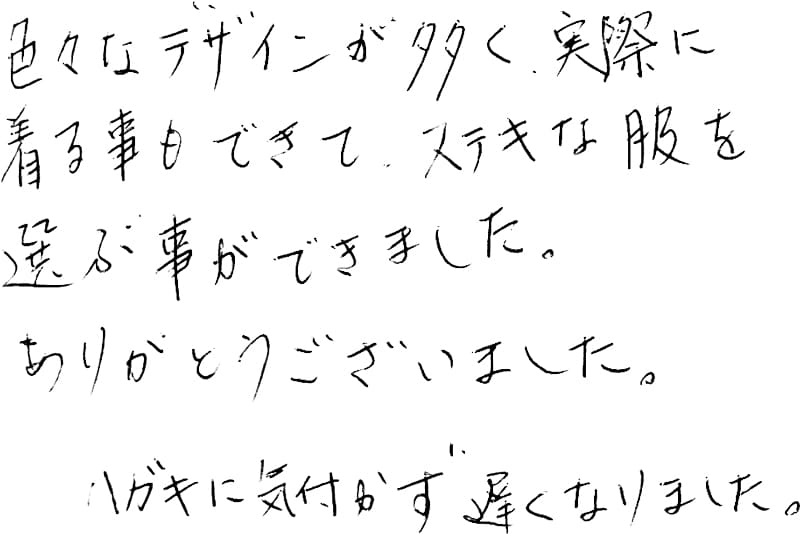 色々なデザインが多く、実際に
着る事もできて、ステキな服を
選ぶ事ができました。
ありがとうございました。
ハガキに気付かず遅くなりました。